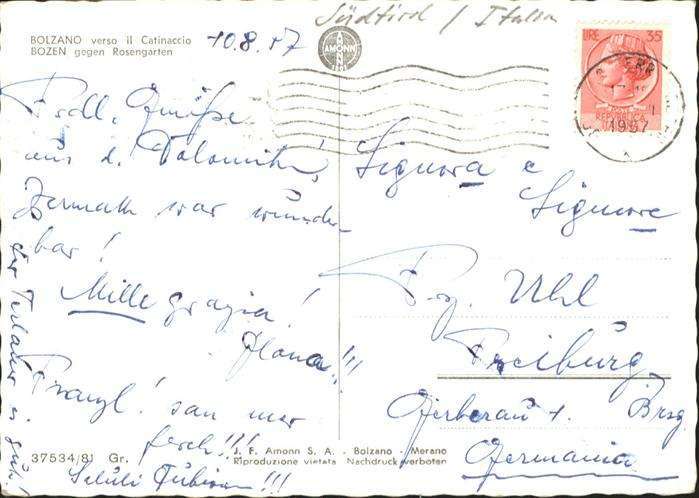 BOLZANO verso il Catinaccio
BOZEN gegen Rosengarten
10.8.57
Südtirol / Italien
AMONN
LIRE 35
REPUBBLICA
1957
Froll. Grüße
aus d. Dolomiten,
Zermatt war wunder-
bar!
Mille grazia!
Franzl! san mer
fesch!!!
der Terlaner is gut!
Signora e
Signore
Uhl
Freiburg
Gerberau Brsg
Germania
37534/81 Gr.
J. F. Amonn S. A. - Bolzano - Merano
Riproduzione vietata Nachdruck verboten